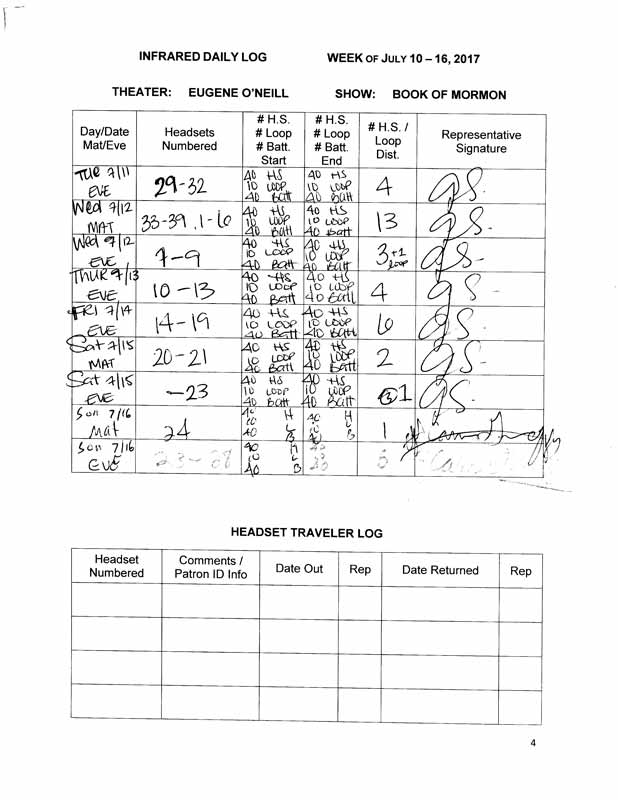 INFRARED DAILY LOG WEEK OF JULY 10 – 16, 2017
THEATER: EUGENE O'NEILL SHOW: BOOK OF MORMON
Day/Date
Mat/Eve
Headsets
Numbered
# H.S.
# Loop
# Batt.
Start
# H.S.
# Loop
# Batt.
End
# H.S. /
Loop
Dist.
Representative
Signature
TUE 7/11
EVE
29-32
40 HS
10 LOOP
40 Batt
40 HS
10 LOOP
40 Batt
4
Wed 7/12
MAT
33-39, 1-6
40 HS
10 LOOP
40 Batt
40 HS
10 LOOP
40 Batt
13
Wed 7/12
EVE
7-9
40 HS
10 LOOP
40 Batt
40 HS
10 LOOP
40 Batt
3+1
loop
THUR 7/13
EVE
10-13
40 HS
10 LOOP
40 Batt
40 HS
10 LOOP
40 Batt
4
FRI 7/14
EVE
14-19
40 HS
10 LOOP
40 Batt
40 HS
10 LOOP
40 Batt
6
Sat 7/15
MAT
20-21
40 HS
10 LOOP
40 Batt
40 HS
10 LOOP
40 Batt
2
Sat 7/15
EVE
-23
40 HS
10 LOOP
40 Batt
40 HS
10 LOOP
40 Batt
1
Sun 7/16
Mat
24
40 H
10 L
40 B
40 H
10 L
40 B
1
Sun 7/16
EVE
40 H
10 L
40 B
HEADSET TRAVELER LOG
Headset
Numbered
Comments /
Patron ID Info
Date Out
Rep
Date Returned
Rep
4